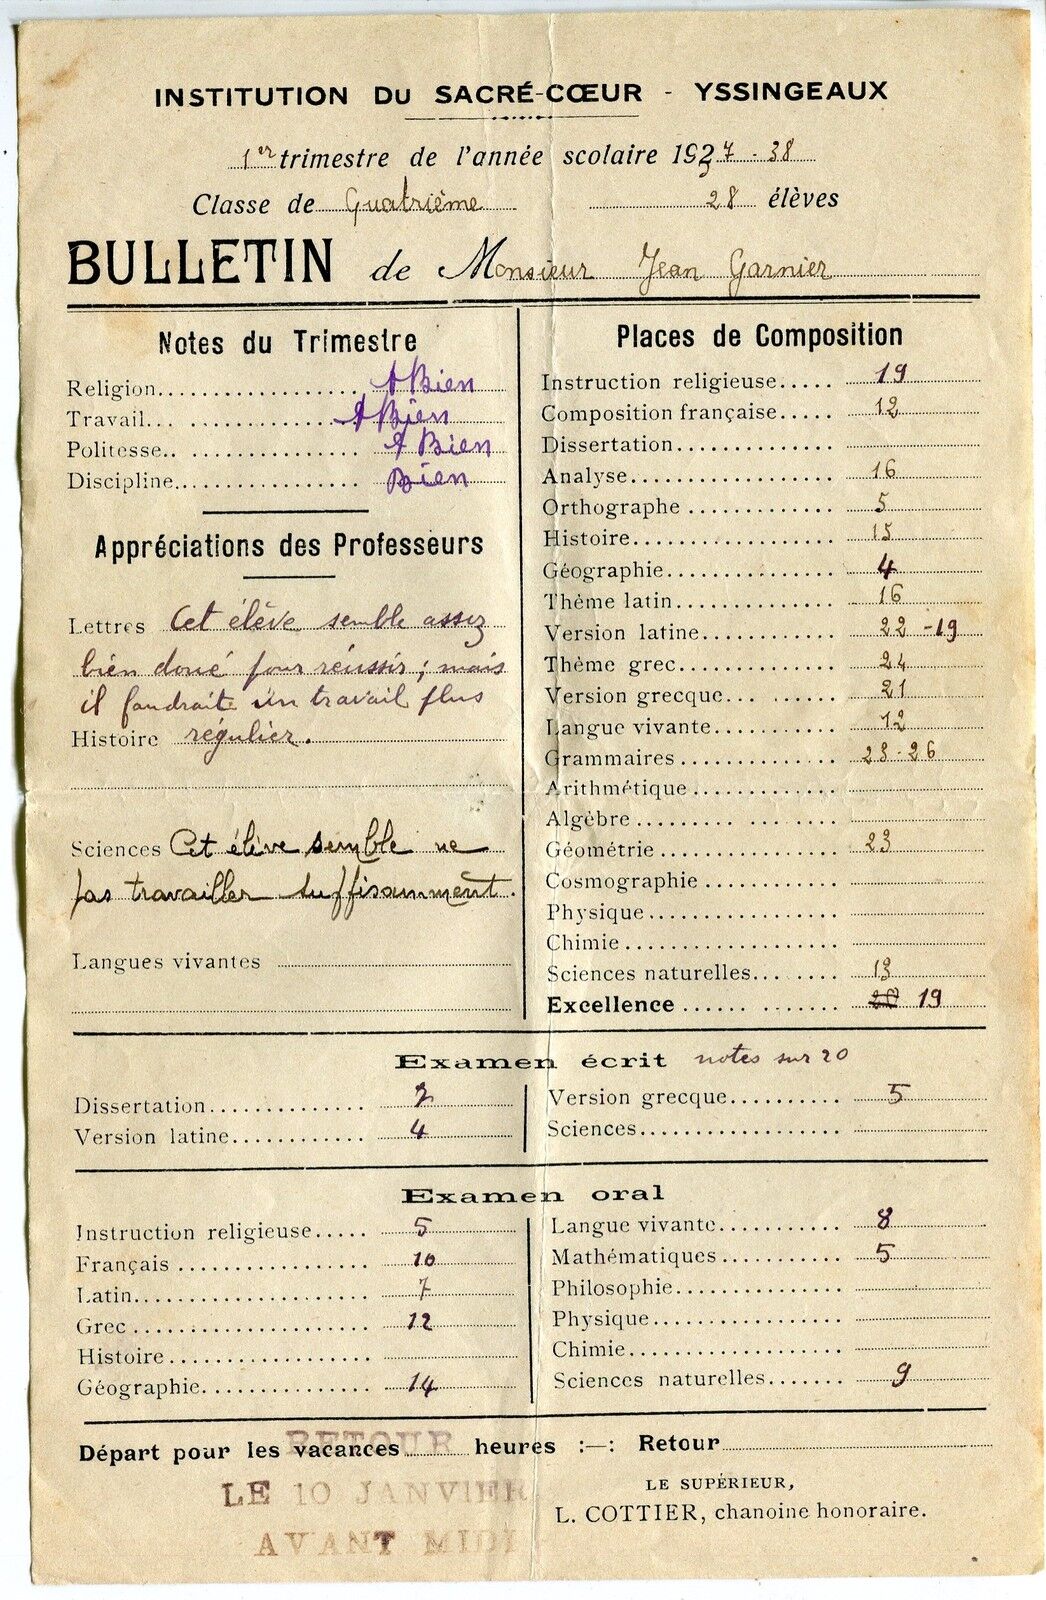 INSTITUTION DU SACRÉ-CŒUR - YSSINGEAUX
1er trimestre de l'année scolaire 1937-38
Classe de Quatrième 28 élèves
BULLETIN de Monsieur Jean Garnier
Notes du Trimestre
Religion A Bien
Travail A Bien
Politesse A Bien
Discipline Bien
Appréciations des Professeurs
Lettres Cet élève semble assez
bien doué pour réussir ; mais
il faudrait un travail plus
Histoire régulier.
Sciences Cet élève semble ne
pas travailler suffisamment.
Langues vivantes
Places de Composition
Instruction religieuse 19
Composition française 12
Dissertation
Analyse 16
Orthographe 5
Histoire 15
Géographie 4
Thème latin 16
Version latine 22 - 19
Thème grec 24
Version grecque 21
Langue vivante 12
Grammaires 23 - 26
Arithmétique
Algèbre
Géométrie 23
Cosmographie
Physique
Chimie
Sciences naturelles 13
Excellence 19
Examen écrit notes sur 20
Dissertation 7
Version latine 4
Version grecque 5
Sciences
Examen oral
Instruction religieuse 5
Français 10
Latin 7
Grec 12
Histoire
Géographie 14
Langue vivante 8
Mathématiques 5
Philosophie
Physique
Chimie
Sciences naturelles 9
Départ pour les vacances heures :—: Retour
RETOUR
LE 10 JANVIER
AVANT MIDI
LE SUPÉRIEUR,
L. COTTIER, chanoine honoraire.